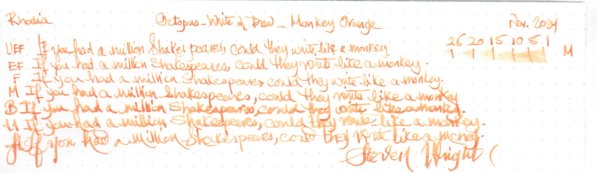 Rhodia Octopus - Write & Draw - Monkey Orange Nov. 2024
UEF If you had a million Shakespeares, could they write like a monkey. 25 20 15 10 5 1
EF If you had a million Shakespeares, could they write like a monkey. M
F If you had a million Shakespeares, could they write like a monkey.
M If you had a million Shakespeares, could they write like a monkey
B If you had a million Shakespeares, could they write like a monkey.
If you had a million Shakespeares, could they write like a monkey.
If you had a million Shakespeares, could they write like a
Steven Wright